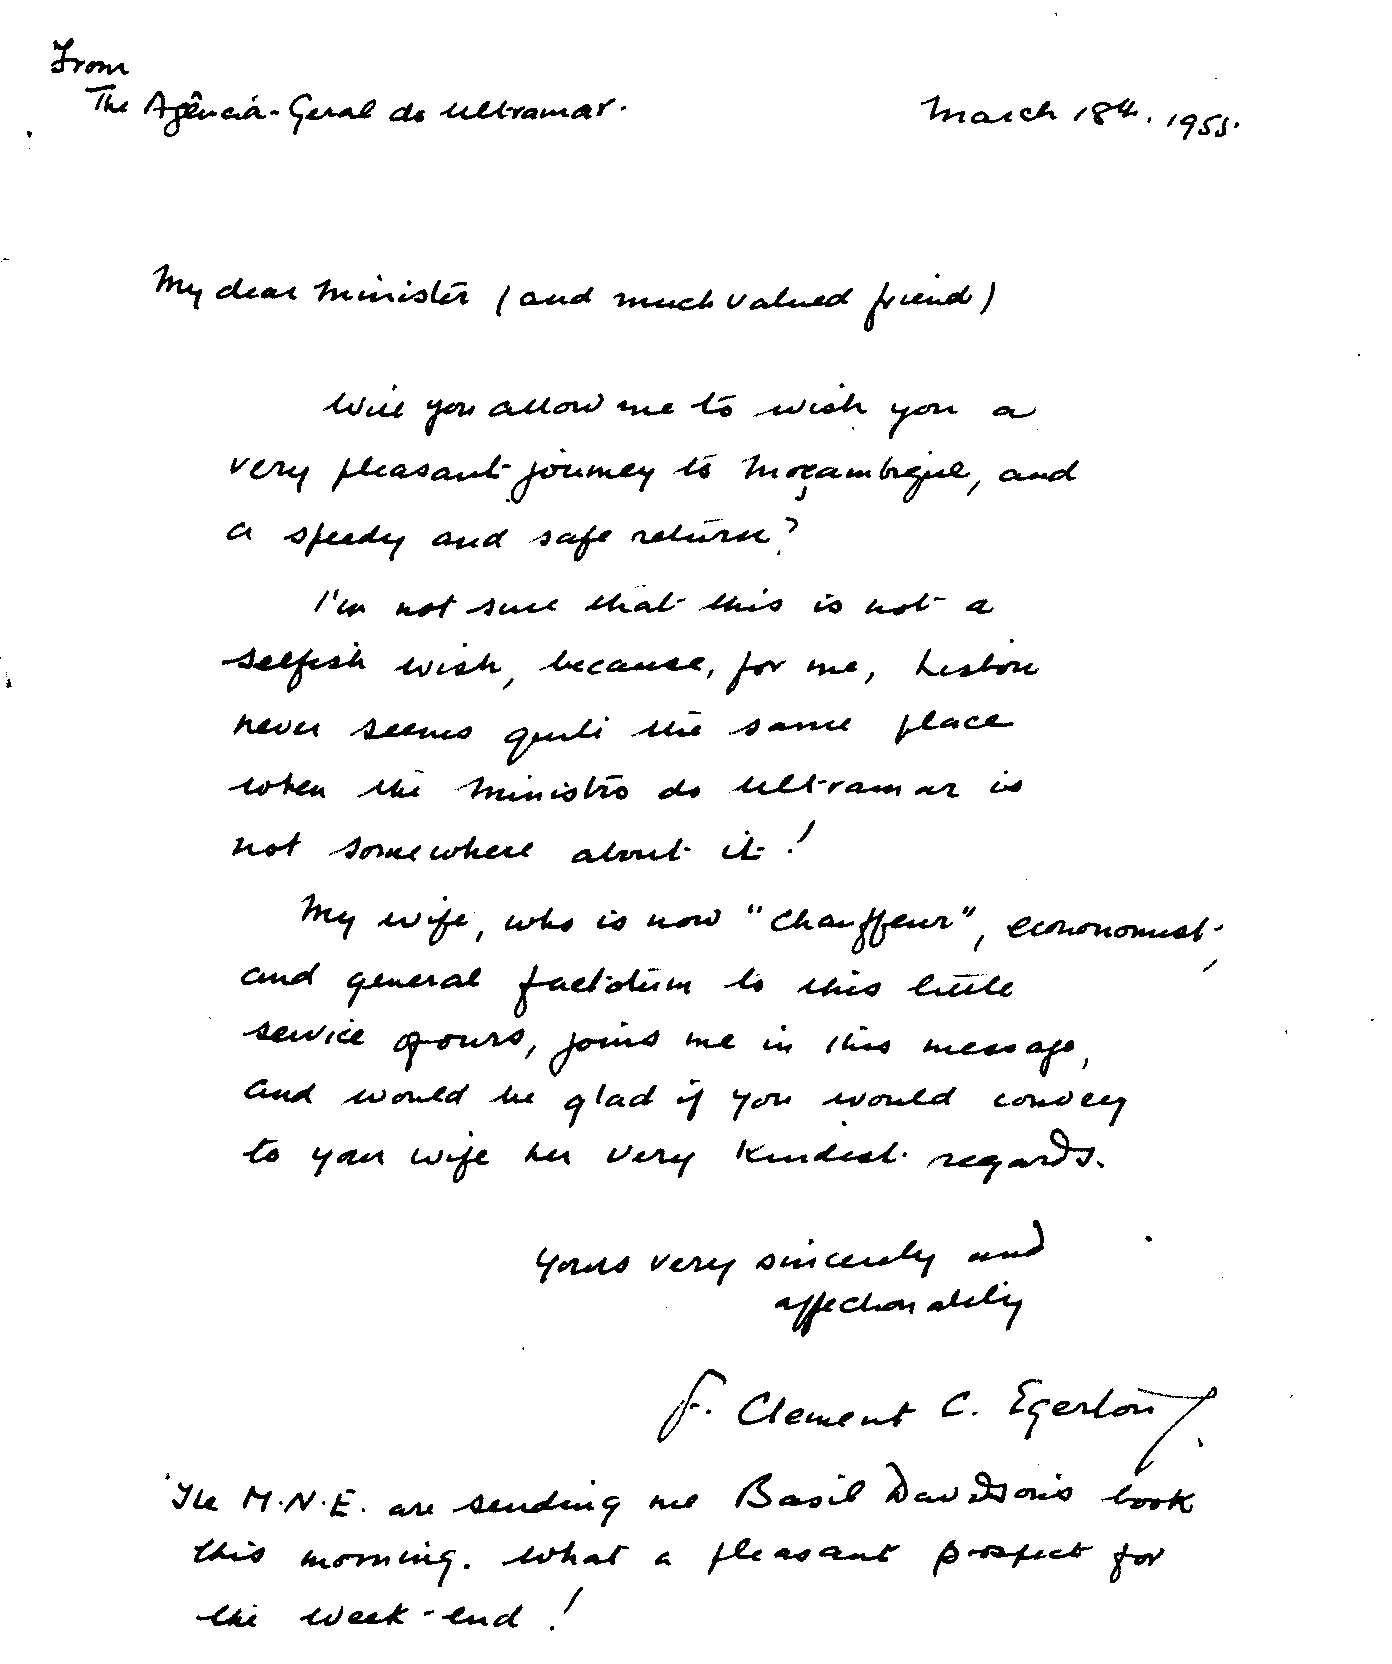 From
The Agência-Geral do Ultramar.
March 18th. 1955.
My dear Minister (and much valued friend)
Will you allow me to wish you a
very pleasant journey to Moçambique, and
a speedy and safe return?
I'm not sure that this is not a
selfish wish, because, for me, Lisbon
never seems quite the same place
when the Ministro do Ultramar is
not somewhere about it!
My wife, who is now "chauffeur", economist,
and general factotum to this little
service of ours, joins me in this message,
and would be glad if you would convey
to your wife her very kindest regards.
Yours very sincerely and
affectionately
F. Clement C. Egerton
The M.N.E. are sending me Basil Davidson's book
this morning. What a pleasant prospect for
the week-end!